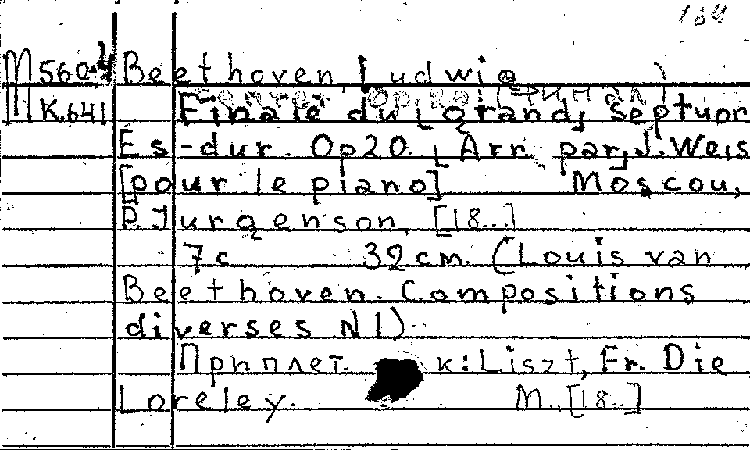 164
M560-4 Beethoven, Ludwig
M K.641 Finale du grand Septuor
Es-dur. Op20. Arr. par J. Weis
[pour le piano] Moscou,
P. Jurgenson, [18..]
7 c 32 cm. (Louis van
Beethoven. Compositions
diverses N1).
Приплет. к: Liszt, Fr. Die
Loreley. M., [18..]